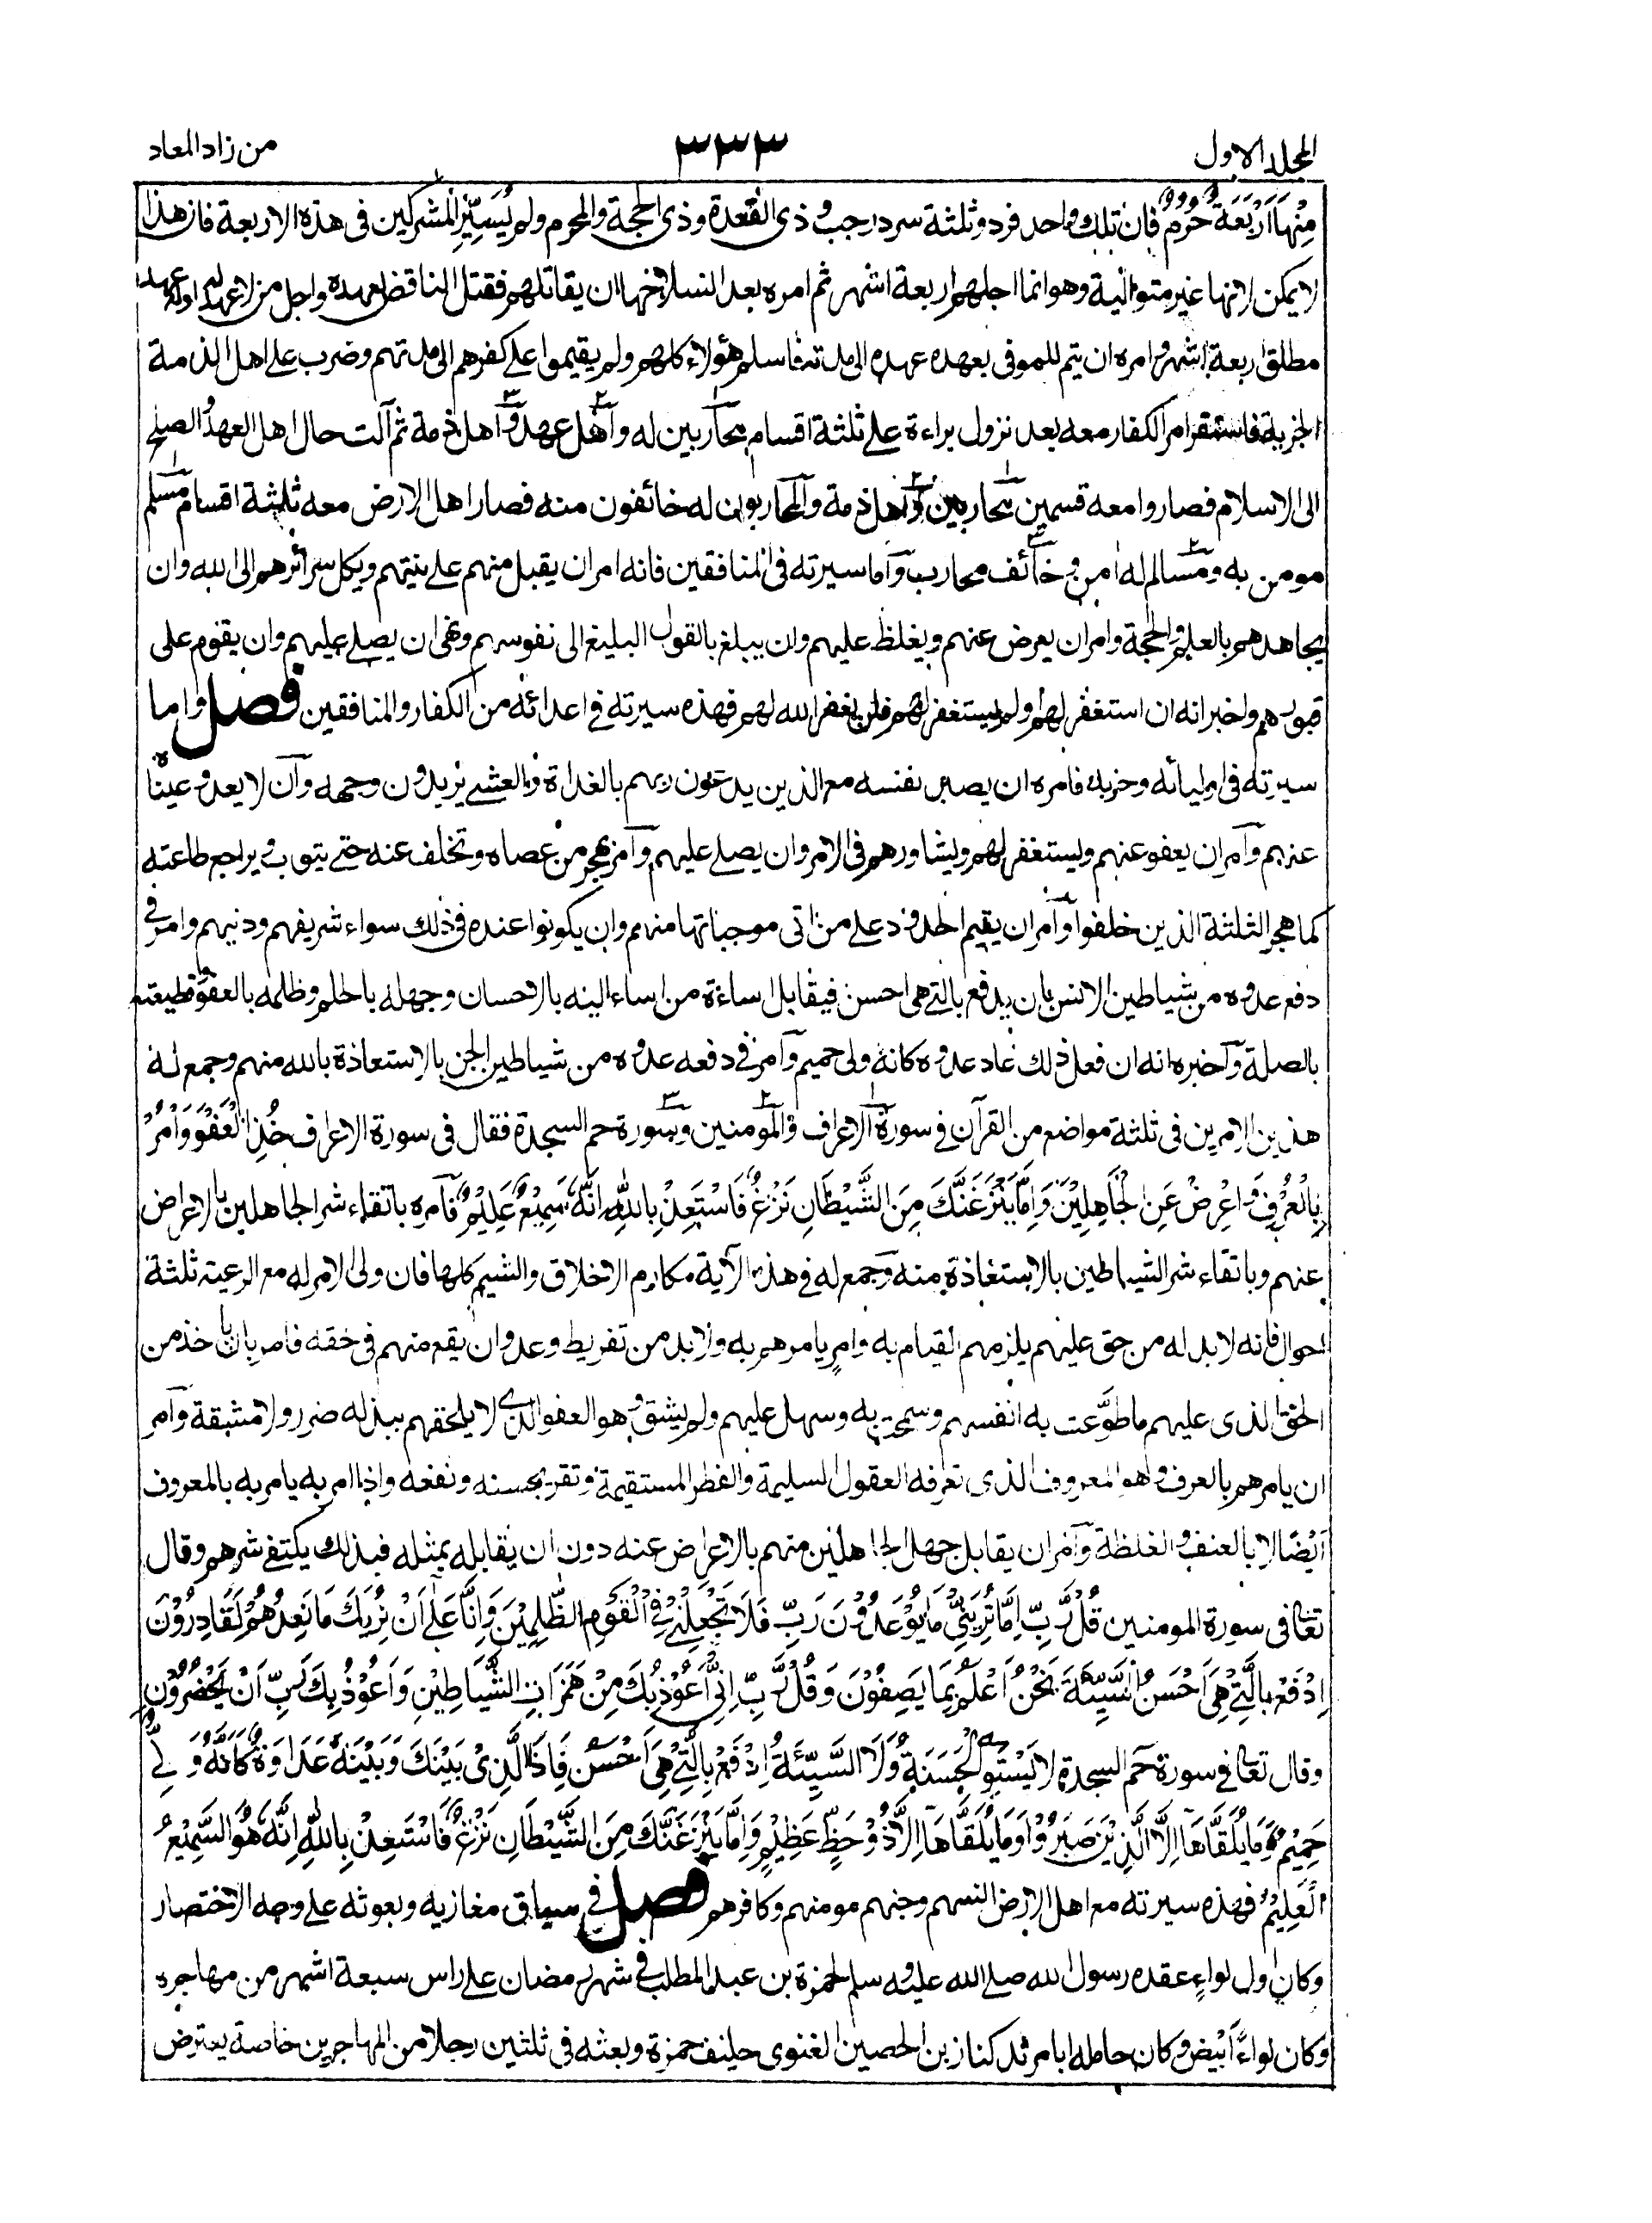 المجلد الاول ٣٣٣ من زاد المعاد
مِنْهَا اَرْبَعَةٌ حُرُمٌ فان تلك واحد فرد وثلثة سرد رجب وذى القعدة وذى الحجة والمحرم ولم يُسَيِّرِ المشركين فى هذه الاربعة فان هذا
لا يمكن لانها غير متوالية وهو انما اجلهم اربعة اشهر ثم امره بعد انسلاخها ان يقاتلهم فقتل الناقض لعهده واجل من لا عهد له اوله عهد
مطلق اربعة اشهر وامره ان يتم للموفى بعهده عهده الى مدته فاسلم هؤلاء كلهم ولم يقيموا على كفرهم الى مدتهم وضرب على اهل الذمة
الجزية فاستقر امر الكفار معه بعد نزول براءة على ثلثة اقسام محاربين له واهل عهد واهل ذمة ثم آلت حال اهل العهد والصلح
الى الاسلام فصاروا معه قسمين محاربين واهل ذمة والمحاربون له خائفون منه فصار اهل الارض معه ثلثة اقسام مسلم
مومن به ومسالم له امن وخائف محارب واما سيرته فى المنافقين فانه امر ان يقبل منهم علانيتهم ويكل سرائرهم الى الله وان
يجاهدهم بالعلم والحجة وامر ان يعرض عنهم ويغلظ عليهم وان يبلغ بالقول البليغ الى نفوسهم ونهى ان يصلى عليهم وان يقوم على
قبورهم واخبر انه ان استغفر لهم او لم يستغفر لهم فلن يغفر الله لهم فهذه سيرته فى اعدائه من الكفار والمنافقين فصل واما
سيرته فى اوليائه وحزبه فامره ان يصبر نفسه مع الذين يدعون ربهم بالغداة والعشى يريدون وجهه وان لا يعدو عيناه
عنهم وامر ان يعفو عنهم ويستغفر لهم ويشاورهم فى الامر وان يصلى عليهم وامر بهجر من عصاه وتخلف عنه حتى يتوب ويراجع طاعته
كما هجر الثلثة الذين خلفوا وامر ان يقيم الحدود على من اتى موجباتها منهم وان يكونوا عنده فى ذلك سواء شريفهم ودنيهم وامر فى
دفع عدوه من شياطين الانس بان يدفع بالتى هى احسن فيقابل اساءة من اساء اليه بالاحسان وجهله بالحلم وظلمه بالعفو وقطيعته
بالصلة واخبره انه ان فعل ذلك عاد عدوه كانه ولى حميم وامر فى دفعه عدوه من شياطين الجن بالاستعاذة بالله منهم وجمع له
هذين الامرين فى ثلثة مواضع من القرآن فى سورة الاعراف والمومنين وسورة حم السجدة فقال فى سورة الاعراف خُذِ الْعَفْوَ وَاْمُرْ
بِالْعُرْفِ وَاعْرِضْ عَنِ الْجَاهِلِيْنَ وَاِمَّا يَنْزَغَنَّكَ مِنَ الشَّيْطَانِ نَزْغٌ فَاسْتَعِذْ بِاللهِ اِنَّهٗ سَمِيْعٌ عَلِيْمٌ فآمره باتقاء شر الجاهلين بالاعراض
عنهم وباتقاء شر الشياطين بالاستعاذة منه وجمع له فى هذه الآية مكارم الاخلاق والشيم كلها فان ولى الامر له مع الرعية ثلثة
احوال فانه لا بد له من حق عليهم يلزمهم القيام به وامر يامرهم به ولا بد من تفريط وعدوان يقع منهم فى حقه فامر بان ياخذ من
الحق الذى عليهم ما طوَّعت به انفسهم وسمحت به وسهل عليهم ولم يشق وهو العفو الذى لا يلحقهم ببذله ضرر ولا مشقة وآمر
ان يامرهم بالعرف وهو المعروف الذى تعرفه العقول السليمة والفطر المستقيمة وتقر بحسنه ونفعه واذا امر به يامر به بالمعروف
اَيْضًا لا بالعنف والغلظة وآمر ان يقابل جهل الجاهلين منهم بالاعراض عنه دون ان يقابله بمثله فبذلك يكتفى شرهم وقال
تعالى فى سورة المومنين قُلْ رَّبِّ اِمَّا تُرِيَنِّىْ مَا يُوْعَدُوْنَ رَبِّ فَلَا تَجْعَلْنِىْ فِى الْقَوْمِ الظّٰلِمِيْنَ وَاِنَّا عَلٰى اَنْ نُرِيَكَ مَا نَعِدُهُمْ لَقَادِرُوْنَ
اِدْفَعْ بِالَّتِىْ هِىَ اَحْسَنُ السَّيِّئَةَ نَحْنُ اَعْلَمُ بِمَا يَصِفُوْنَ وَقُلْ رَّبِّ اِنِّىْ اَعُوْذُ بِكَ مِنْ هَمَزَاتِ الشَّيَاطِيْنِ وَاَعُوْذُ بِكَ رَبِّ اَنْ يَحْضُرُوْنِ
وقال تعالى فى سورة حم السجدة لا تَسْتَوِى الْحَسَنَةُ وَلَا السَّيِّئَةُ اِدْفَعْ بِالَّتِىْ هِىَ اَحْسَنُ فَاِذَا الَّذِىْ بَيْنَكَ وَبَيْنَهٗ عَدَاوَةٌ كَاَنَّهٗ وَلِىٌّ
حَمِيْمٌ وَمَا يُلَقَّاهَا اِلَّا الَّذِيْنَ صَبَرُوْا وَمَا يُلَقَّاهَا اِلَّا ذُوْ حَظٍّ عَظِيْمٍ وَاِمَّا يَنْزَغَنَّكَ مِنَ الشَّيْطَانِ نَزْغٌ فَاسْتَعِذْ بِاللهِ اِنَّهٗ هُوَ السَّمِيْعُ
الْعَلِيْمُ فهذه سيرته مع اهل الارض انسهم وجنهم مومنهم وكافرهم فصل فى سياق مغازيه وبعوثه على وجه الاختصار
وكان اول لواءٍ عقده رسول الله صلى الله عليه وسلم لحمزة بن عبد المطلب فى شهر رمضان على راس سبعة اشهر من مهاجره
وكان لواءً اَبْيَض وكان حامله ابا مرثد كناز بن الحصين الغنوى حليف حمزة وبعثه فى ثلثين رجلا من المهاجرين خاصة يعترض